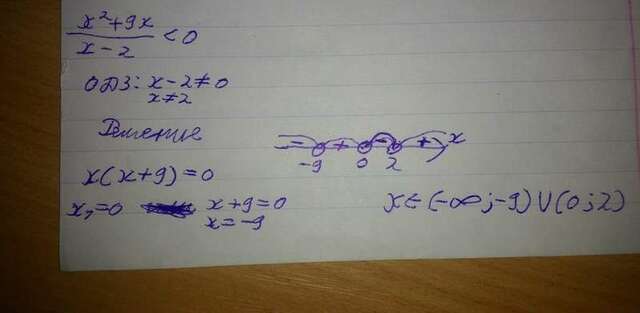 x²+9x
x-2 < 0
ОДЗ: x-2≠0
x≠2
Решение
- + - + x
-9 0 2
x(x+9)=0
x₁=0 x+9=0
x=-9
x∈(-∞;-9)∪(0;2)